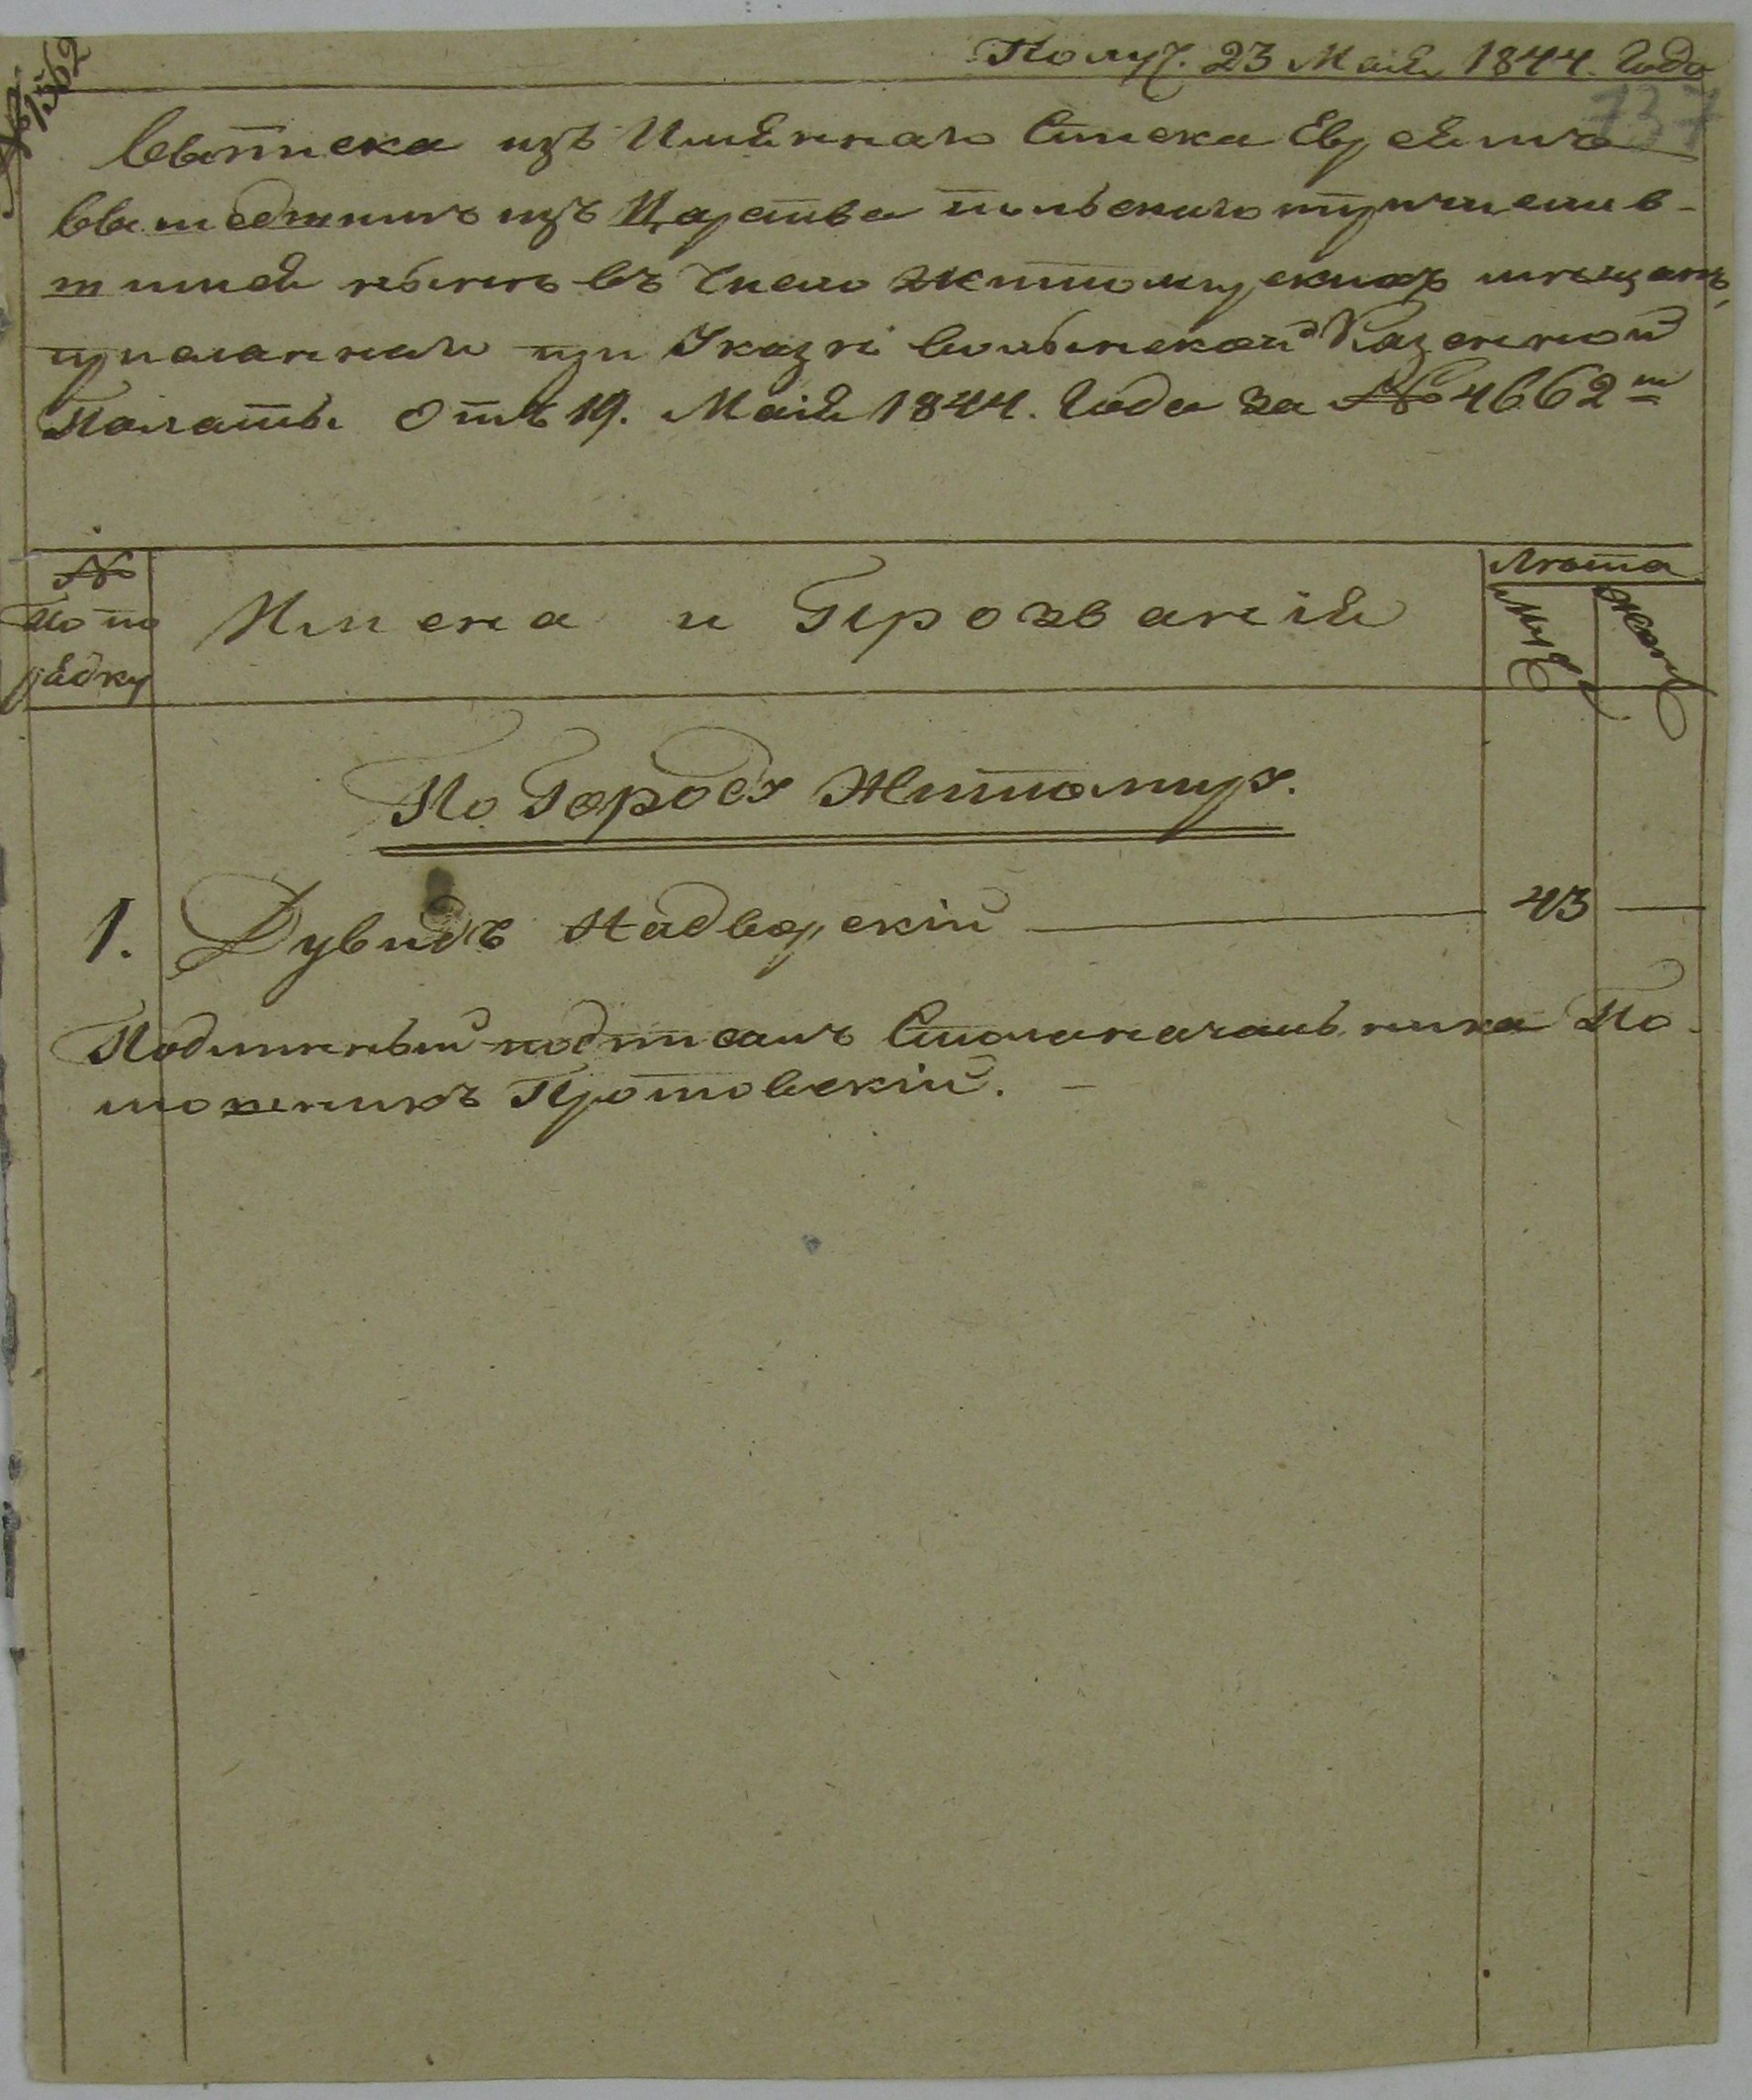 № 1562
Получ. 23 Маія 1844. Года
737
Выписка изъ Имяннаго Списка Евреямъ
Вышедшимъ изъ Царства польскаго причислив-
шимся нынѣ въ Число житомирскихъ мѣщанъ,
присланнаго при Указѣ волынской Казенной
Палаты отъ 19. Маія 1844. Года за № 4662 м
№
По по
рядку
Имена и Прозванія
Лѣта
Муж.
Жен.
По Городу Житомиру.
1. Дувидъ Надворскій 43
Подлинный подписалъ Столоначальника По-
мощникъ Протовскій.